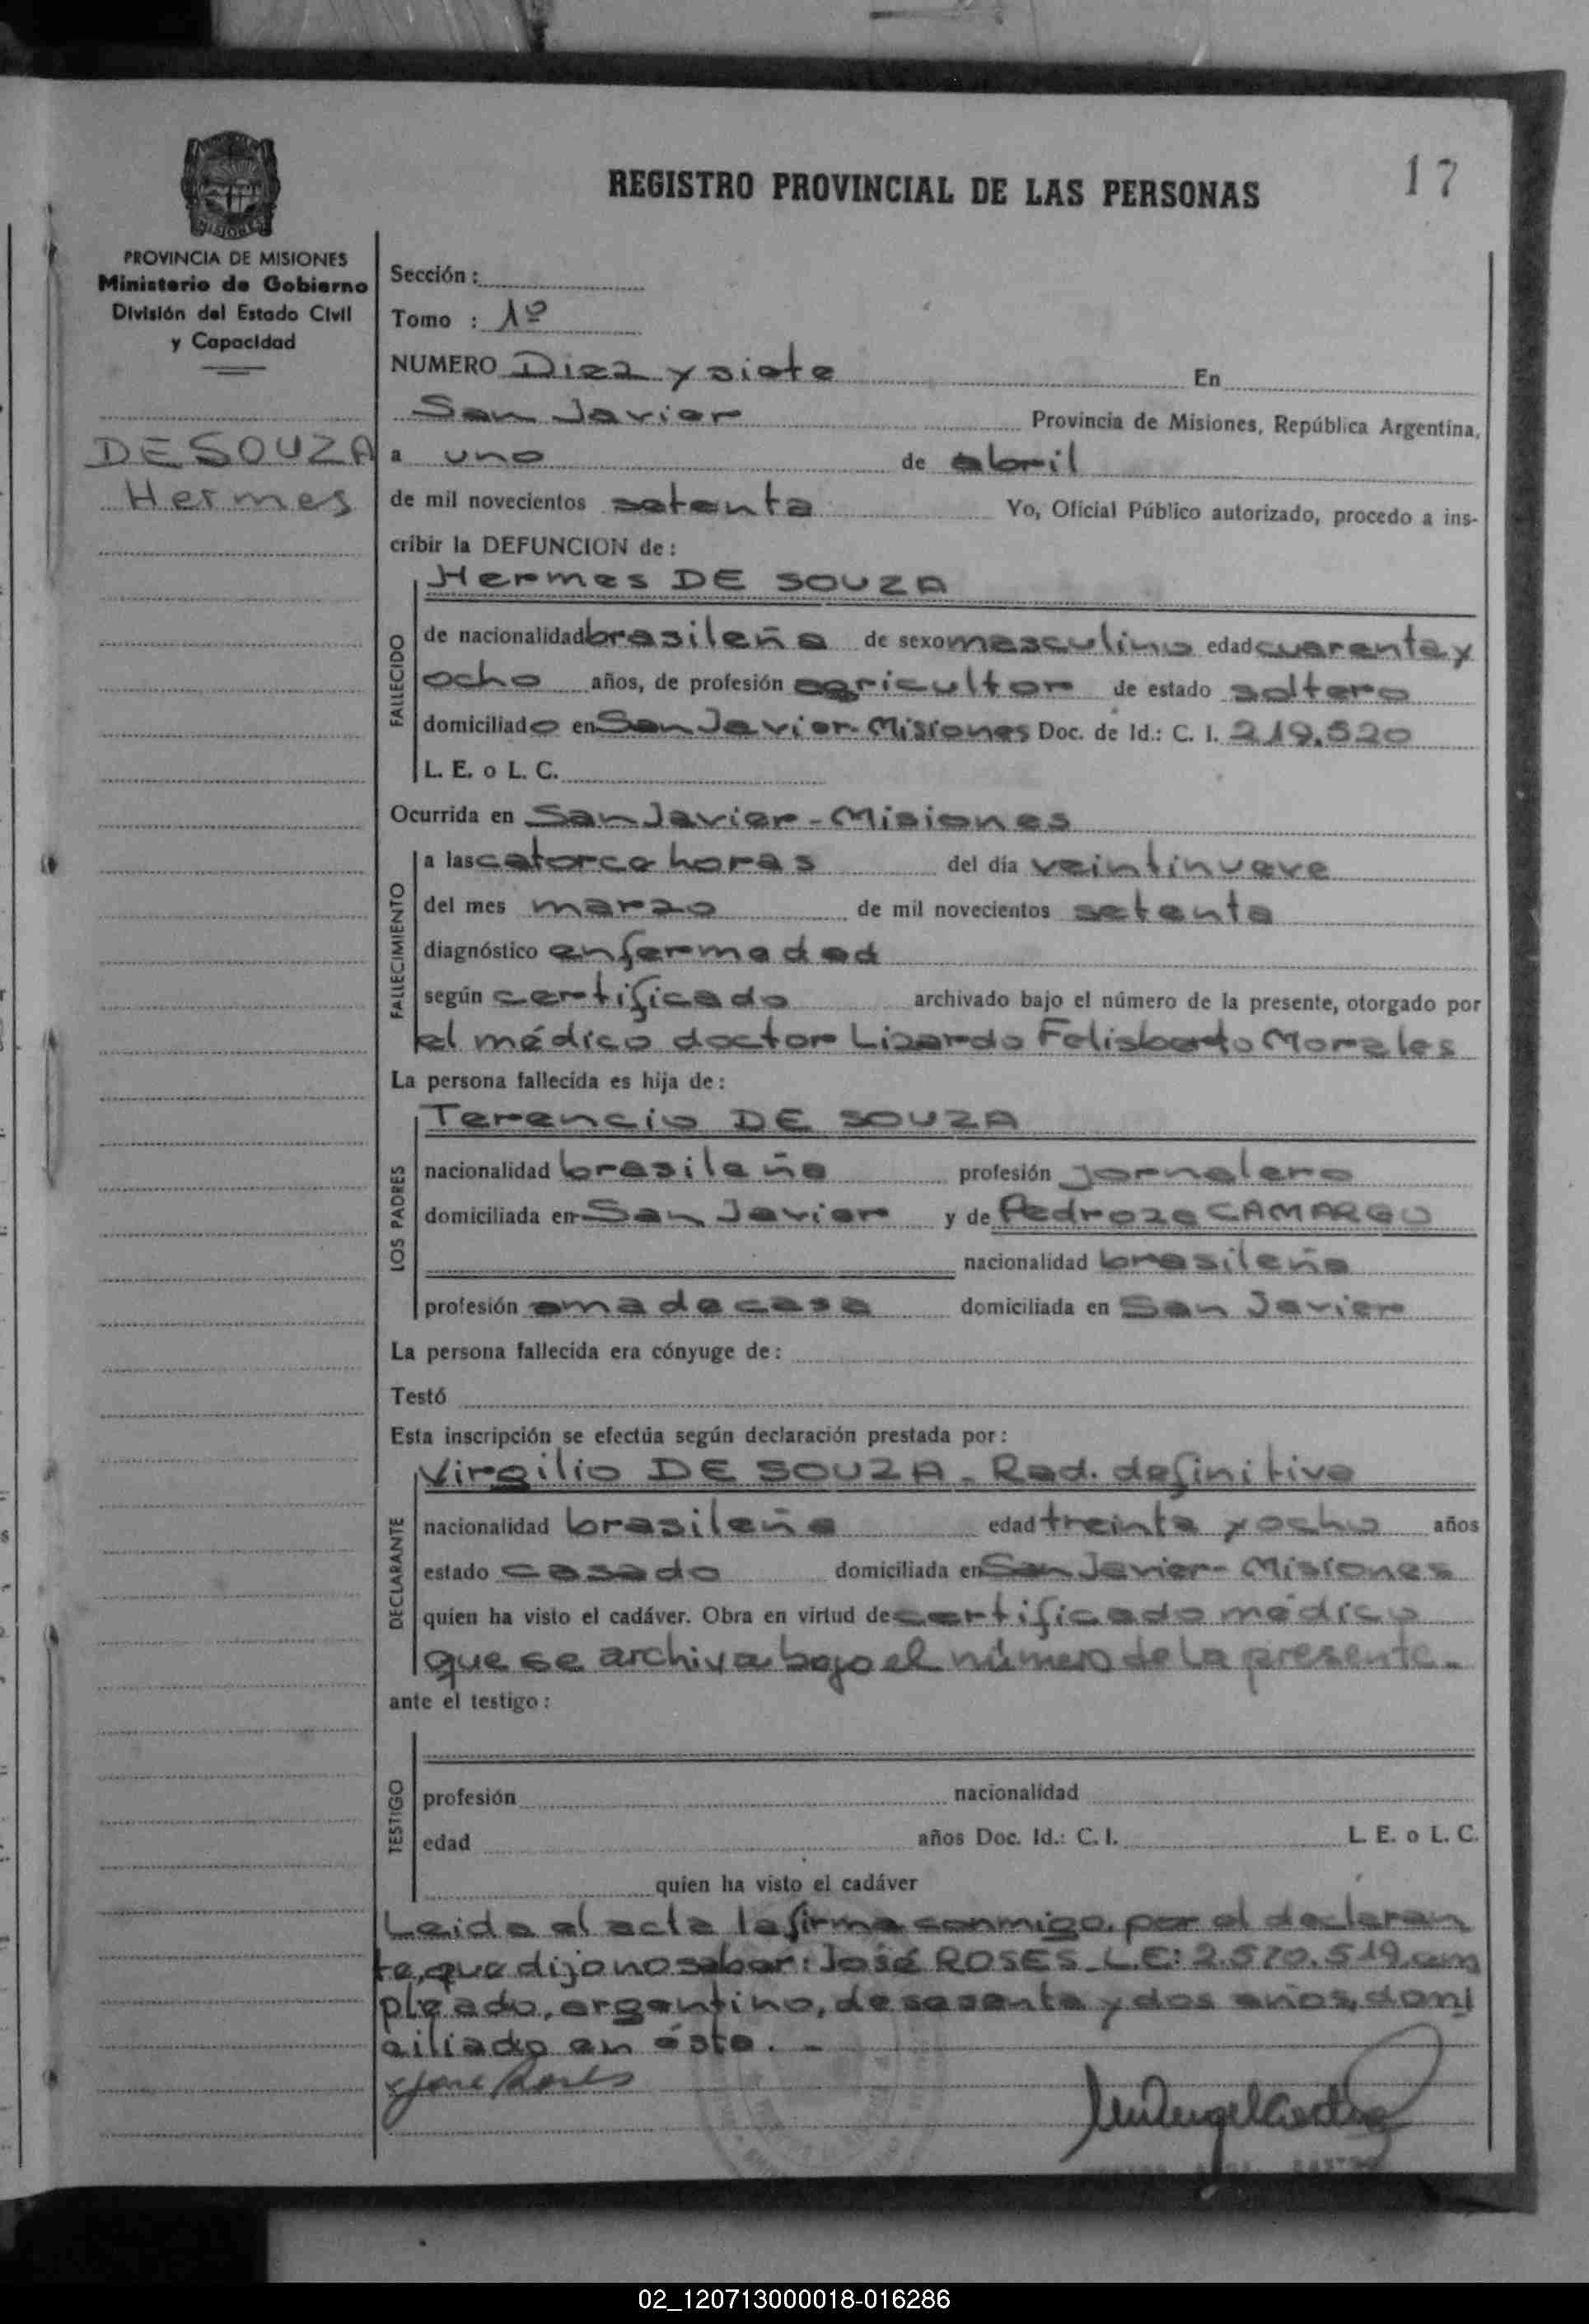 REGISTRO PROVINCIAL DE LAS PERSONAS
17
MISIONES
PROVINCIA DE MISIONES
Ministerio de Gobierno
División del Estado Civil
y Capacidad
DE SOUZA
Hermes
Sección :
Tomo : 1º
NUMERO Diez y siete En
San Javier Provincia de Misiones, República Argentina,
a uno de abril
de mil novecientos setenta Yo, Oficial Público autorizado, procedo a ins-
cribir la DEFUNCION de :
FALLECIDO
Hermes DE SOUZA
de nacionalidad brasileña de sexo masculino edad cuarenta y
ocho años, de profesión agricultor de estado soltero
domiciliado en San Javier-Misiones Doc. de Id.: C. I. 219.520
L. E. o L. C.
Ocurrida en San Javier-Misiones
FALLECIMIENTO
a las catorce horas del día veintinueve
del mes marzo de mil novecientos setenta
diagnóstico enfermedad
según certificado archivado bajo el número de la presente, otorgado por
el médico doctor Lizardo Felisberto Morales
La persona fallecida es hija de :
LOS PADRES
Terencio DE SOUZA
nacionalidad brasileña profesión jornalero
domiciliada en San Javier y de Pedroza CAMARGO
nacionalidad brasileña
profesión ama de casa domiciliada en San Javier
La persona fallecida era cónyuge de :
Testó
Esta inscripción se efectúa según declaración prestada por :
DECLARANTE
Virgilio DE SOUZA. Rad. definitiva
nacionalidad brasileña edad treinta y ocho años
estado casado domiciliada en San Javier-Misiones
quien ha visto el cadáver. Obra en virtud de certificado médico
que se archiva bajo el número de la presente.
ante el testigo :
TESTIGO
profesión nacionalidad
edad años Doc. Id.: C. I. L. E. o L. C.
quien ha visto el cadáver
Leida el acta la firma conmigo, por el declaran
te, que dijo no saber: José ROSES_L.E: 2.570.519, em
pleado, argentino, de sesenta y dos años, domi
ciliado en ésta. -
José Roses
02_120713000018-016286